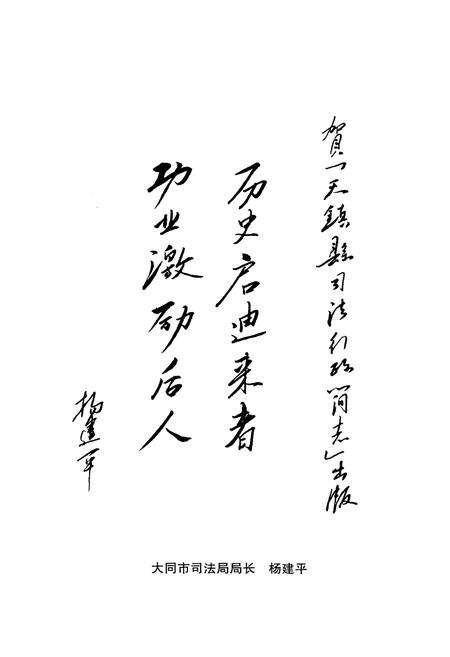 賀「天鎮縣司法行政簡志」出版
历史启迪来者
功业激励后人
杨建平
大同市司法局局长　杨建平